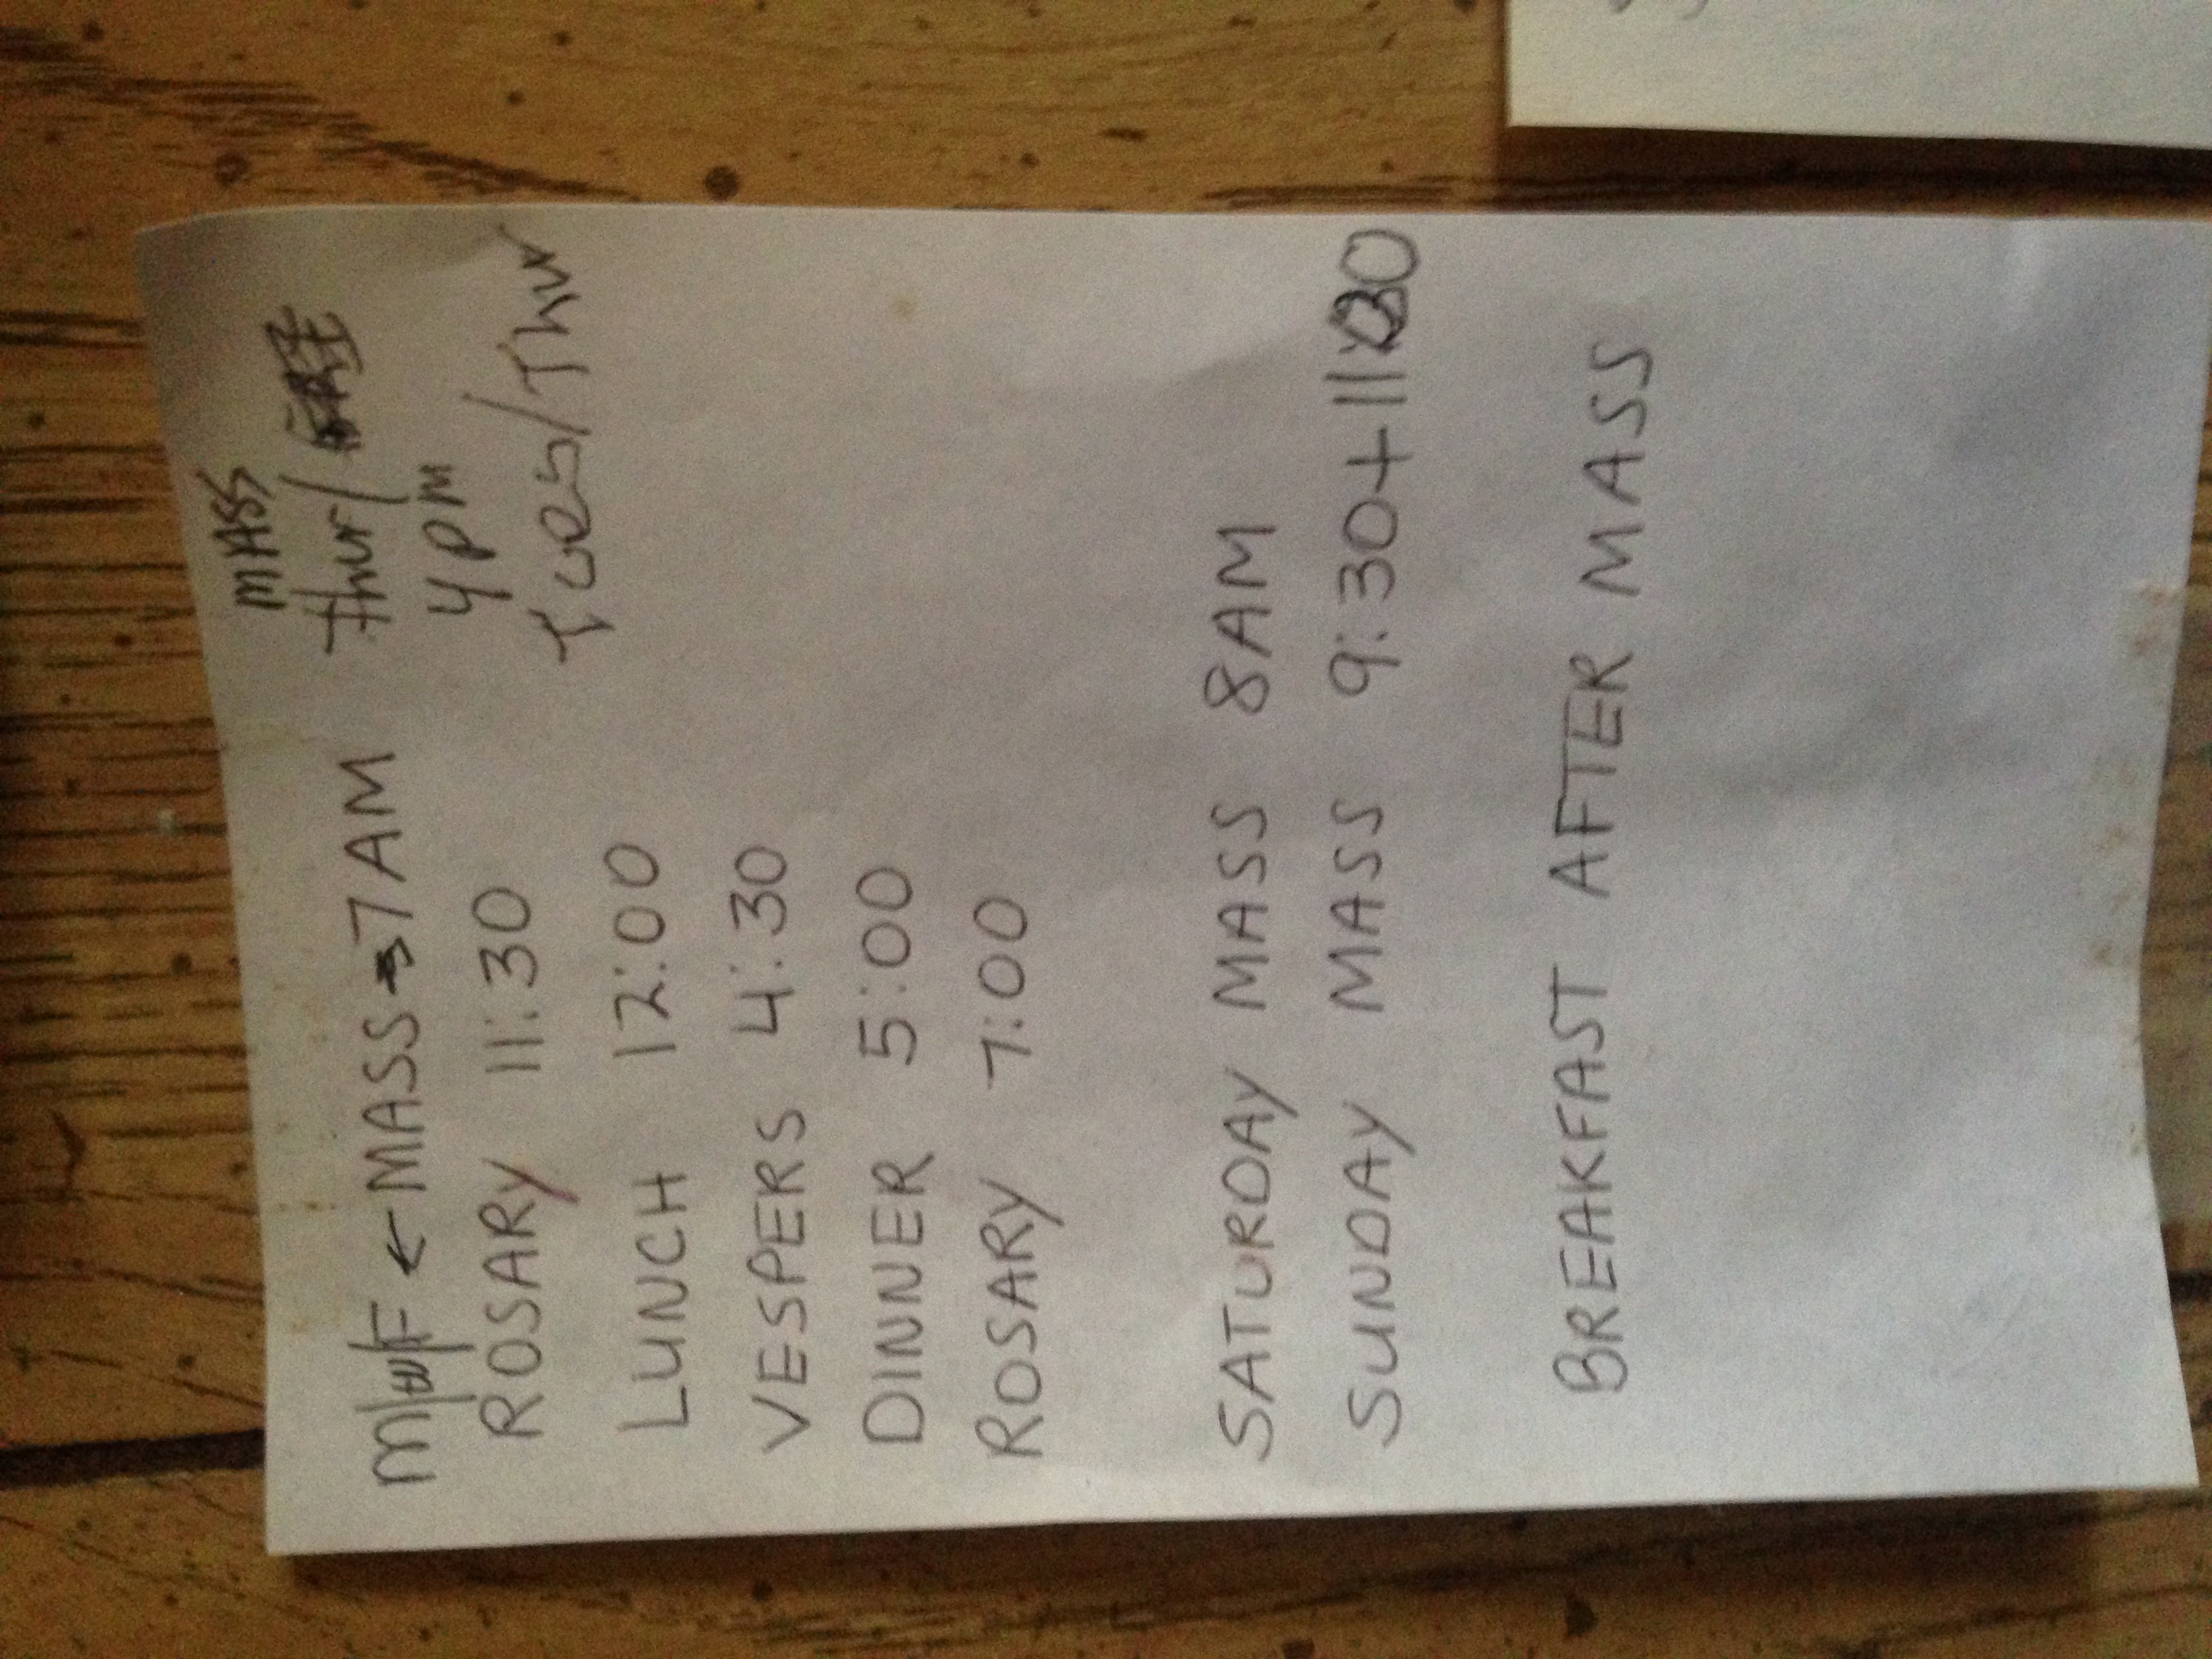 MASS
M/W/F ← MASS → 7AM thur/
ROSARY 11:30 4 pm
Tues/Thur
LUNCH 12:00
VESPERS 4:30
DINNER 5:00
ROSARY 7:00
SATURDAY MASS 8AM
SUNDAY MASS 9:30 + 11:30
BREAKFAST AFTER MASS